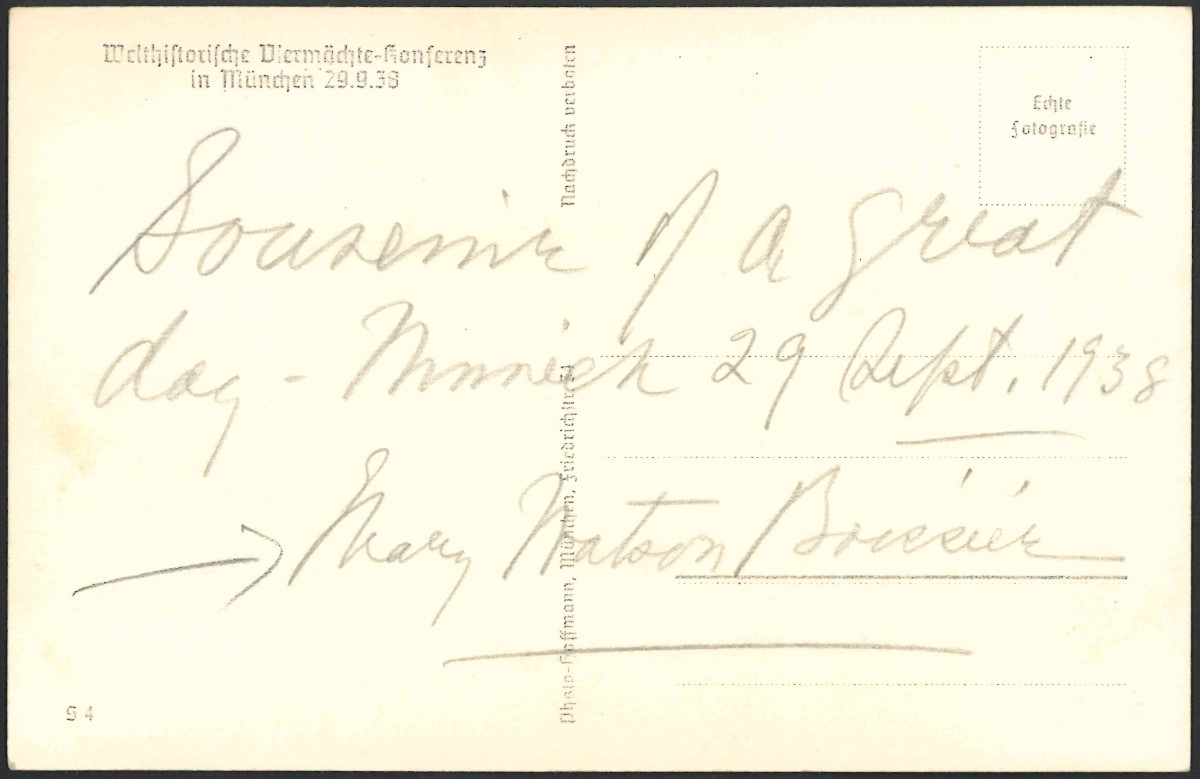 Welthistorische Viermächte-Konferenz
in München 29.9.38
Nachdruck verboten
Echte
Fotografie
Souvenir of a great
day - Munich 29 Sept. 1938
Mary Watson Boissier
Photo-Hoffmann, München, Friedrichstr.
S 4